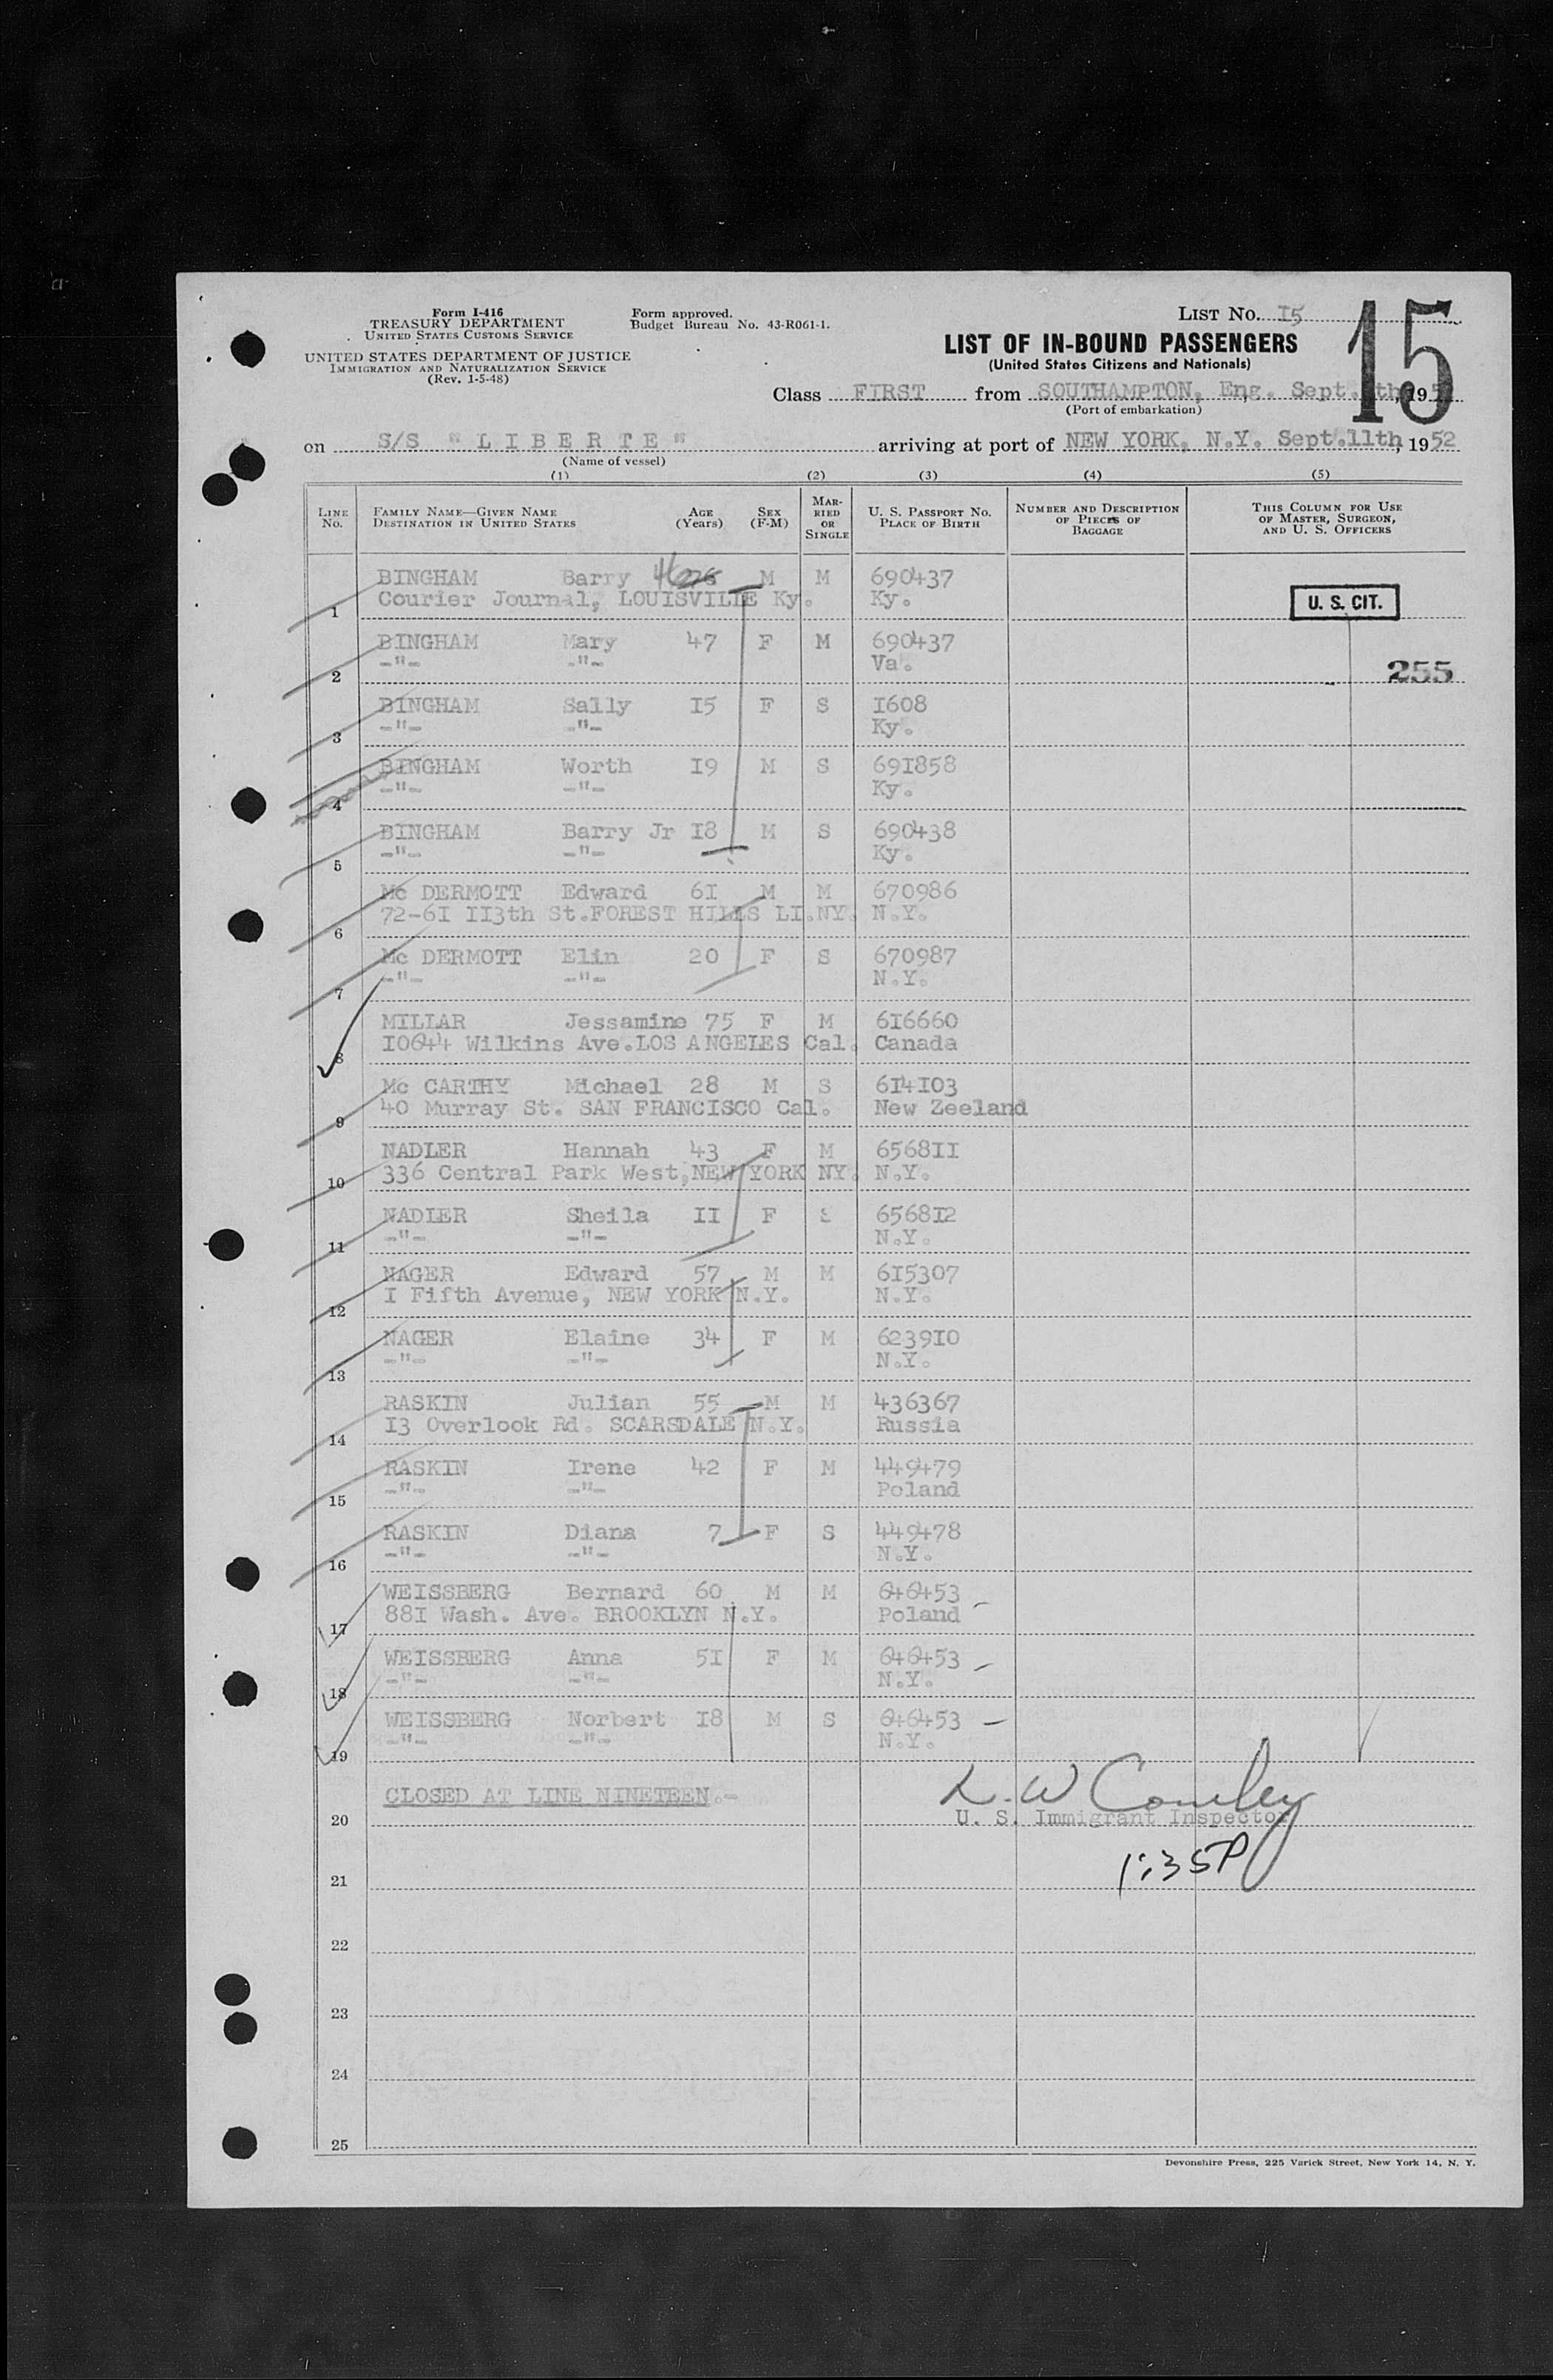 Form I-416
TREASURY DEPARTMENT
UNITED STATES CUSTOMS SERVICE
UNITED STATES DEPARTMENT OF JUSTICE
IMMIGRATION AND NATURALIZATION SERVICE
(Rev. 1-5-48)
Form approved.
Budget Bureau No. 43-R061-1.
LIST NO. 15
15
LIST OF IN-BOUND PASSENGERS
(United States Citizens and Nationals)
Class FIRST from SOUTHAMPTON, Eng. Sept. th, 195
(Port of embarkation)
on S/S "LIBERTE" arriving at port of NEW YORK, N.Y. Sept.11th, 1952
(Name of vessel)
(1) (2) (3) (4) (5)
LINE NO. FAMILY NAME—GIVEN NAME DESTINATION IN UNITED STATES AGE (Years) SEX (F-M) MARRIED OR SINGLE U. S. PASSPORT NO. PLACE OF BIRTH NUMBER AND DESCRIPTION OF PIECES OF BAGGAGE THIS COLUMN FOR USE OF MASTER, SURGEON, AND U. S. OFFICERS
BINGHAM Barry 46 M M 690437
1 Courier Journal, LOUISVILLE Ky. Ky. U. S. CIT.
BINGHAM Mary 47 F M 690437
2 -"- -"- Va. 255
BINGHAM Sally 15 F S 1608
3 -"- -"- Ky.
BINGHAM Worth 19 M S 691858
4 -"- -"- Ky.
BINGHAM Barry Jr 18 M S 690438
5 -"- -"- Ky.
Mc DERMOTT Edward 61 M M 670986
6 72-61 113th St.FOREST HILLS LI.NY. N.Y.
Mc DERMOTT Elin 20 F S 670987
7 -"- -"- N.Y.
MILLAR Jessamine 75 F M 616660
8 10644 Wilkins Ave.LOS ANGELES Cal. Canada
Mc CARTHY Michael 28 M S 614103
9 40 Murray St. SAN FRANCISCO Cal. New Zeeland
NADLER Hannah 43 F M 656811
10 336 Central Park West,NEW YORK NY. N.Y.
NADLER Sheila 11 F S 656812
11 -"- -"- N.Y.
NAGER Edward 57 M M 615307
12 1 Fifth Avenue, NEW YORK N.Y. N.Y.
NAGER Elaine 34 F M 623910
13 -"- -"- N.Y.
RASKIN Julian 55 M M 436367
14 13 Overlook Rd. SCARSDALE N.Y. Russia
RASKIN Irene 42 F M 449479
15 -"- -"- Poland
RASKIN Diana 7 F S 449478
16 -"- -"- N.Y.
WEISSBERG Bernard 60 M M 646453 -
17 881 Wash. Ave. BROOKLYN N.Y. Poland
WEISSBERG Anna 51 F M 646453 -
18 -"- -"- N.Y.
WEISSBERG Norbert 18 M S 646453 -
19 -"- -"- N.Y.
CLOSED AT LINE NINETEEN.-
20 U. S. Immigrant Inspector
21 1:35P
22
23
24
25
Devonshire Press, 225 Varick Street, New York 14, N. Y.